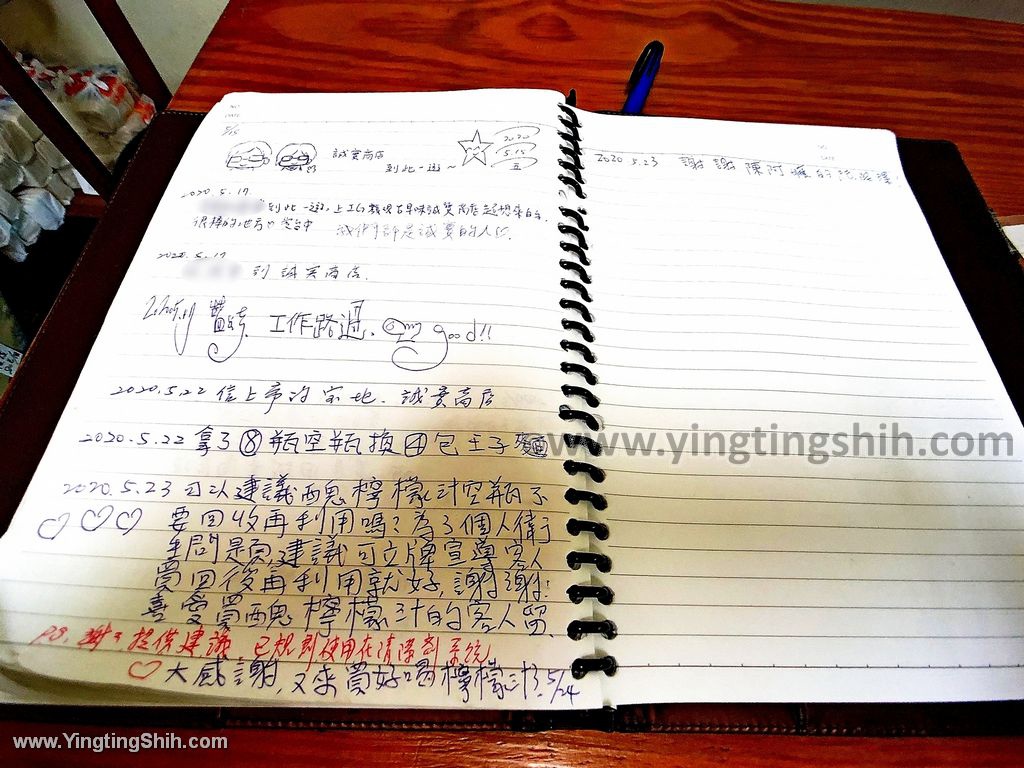 NO
DATE
5/15
誠實商店
到此一遊~
2020
5.15
五
2020.5.17
到此一遊,上
很棒的地方
我們都是誠實的人
2020.5.17
到 誠實商店.
工作路過. good!!
2020.5.22 信上帝的 誠實商店
2020.5.22 拿了⑧瓶空瓶換4包土子麵
2020.5.23 可以建議醜檸檬汁空瓶不
要回收再利用嗎?為了個人衛
生問題,建議可立牌宣導客人
買回後再利用就好,謝謝!
喜愛買醜檸檬汁的客人留.
PS. 謝謝提供建議,已規劃使用在清潔劑系統
大感謝,又來買好喝檸檬汁. 5/24
NO
DATE
2020 5.23 謝謝陳阿
www.yingtingshih.com
www.YingtingShih.com